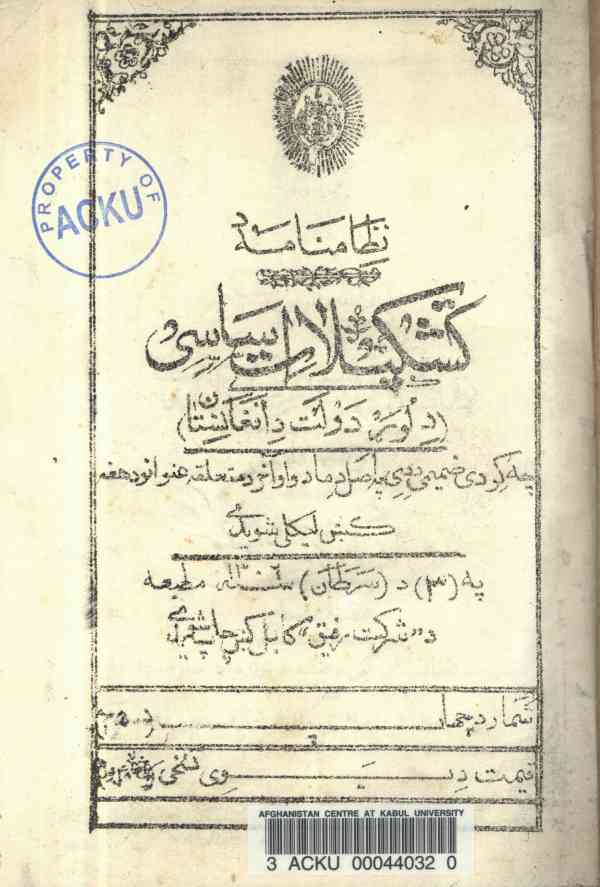 PROPERTY OF
ACKU
نظامنامه د
تشکیلات سیاسی
(د لوړ دولت د افغانستان)
چه کړدی ضمیمی ددی په اصل د مادو او اخر د متعلقه عنوانو دهغه
کښ لیکلی شویدی
په () د (سرطان) سنه مطبعه
د "شرکت رفیق" کابل کښ چاپ
شمار د چهاپ
قیمت د وی نسخی
AFGHANISTAN CENTRE AT KABUL UNIVERSITY
3 ACKU 00044032 0